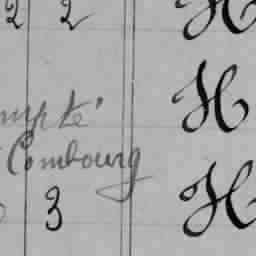 2 2 H
H
Combourg
3 H